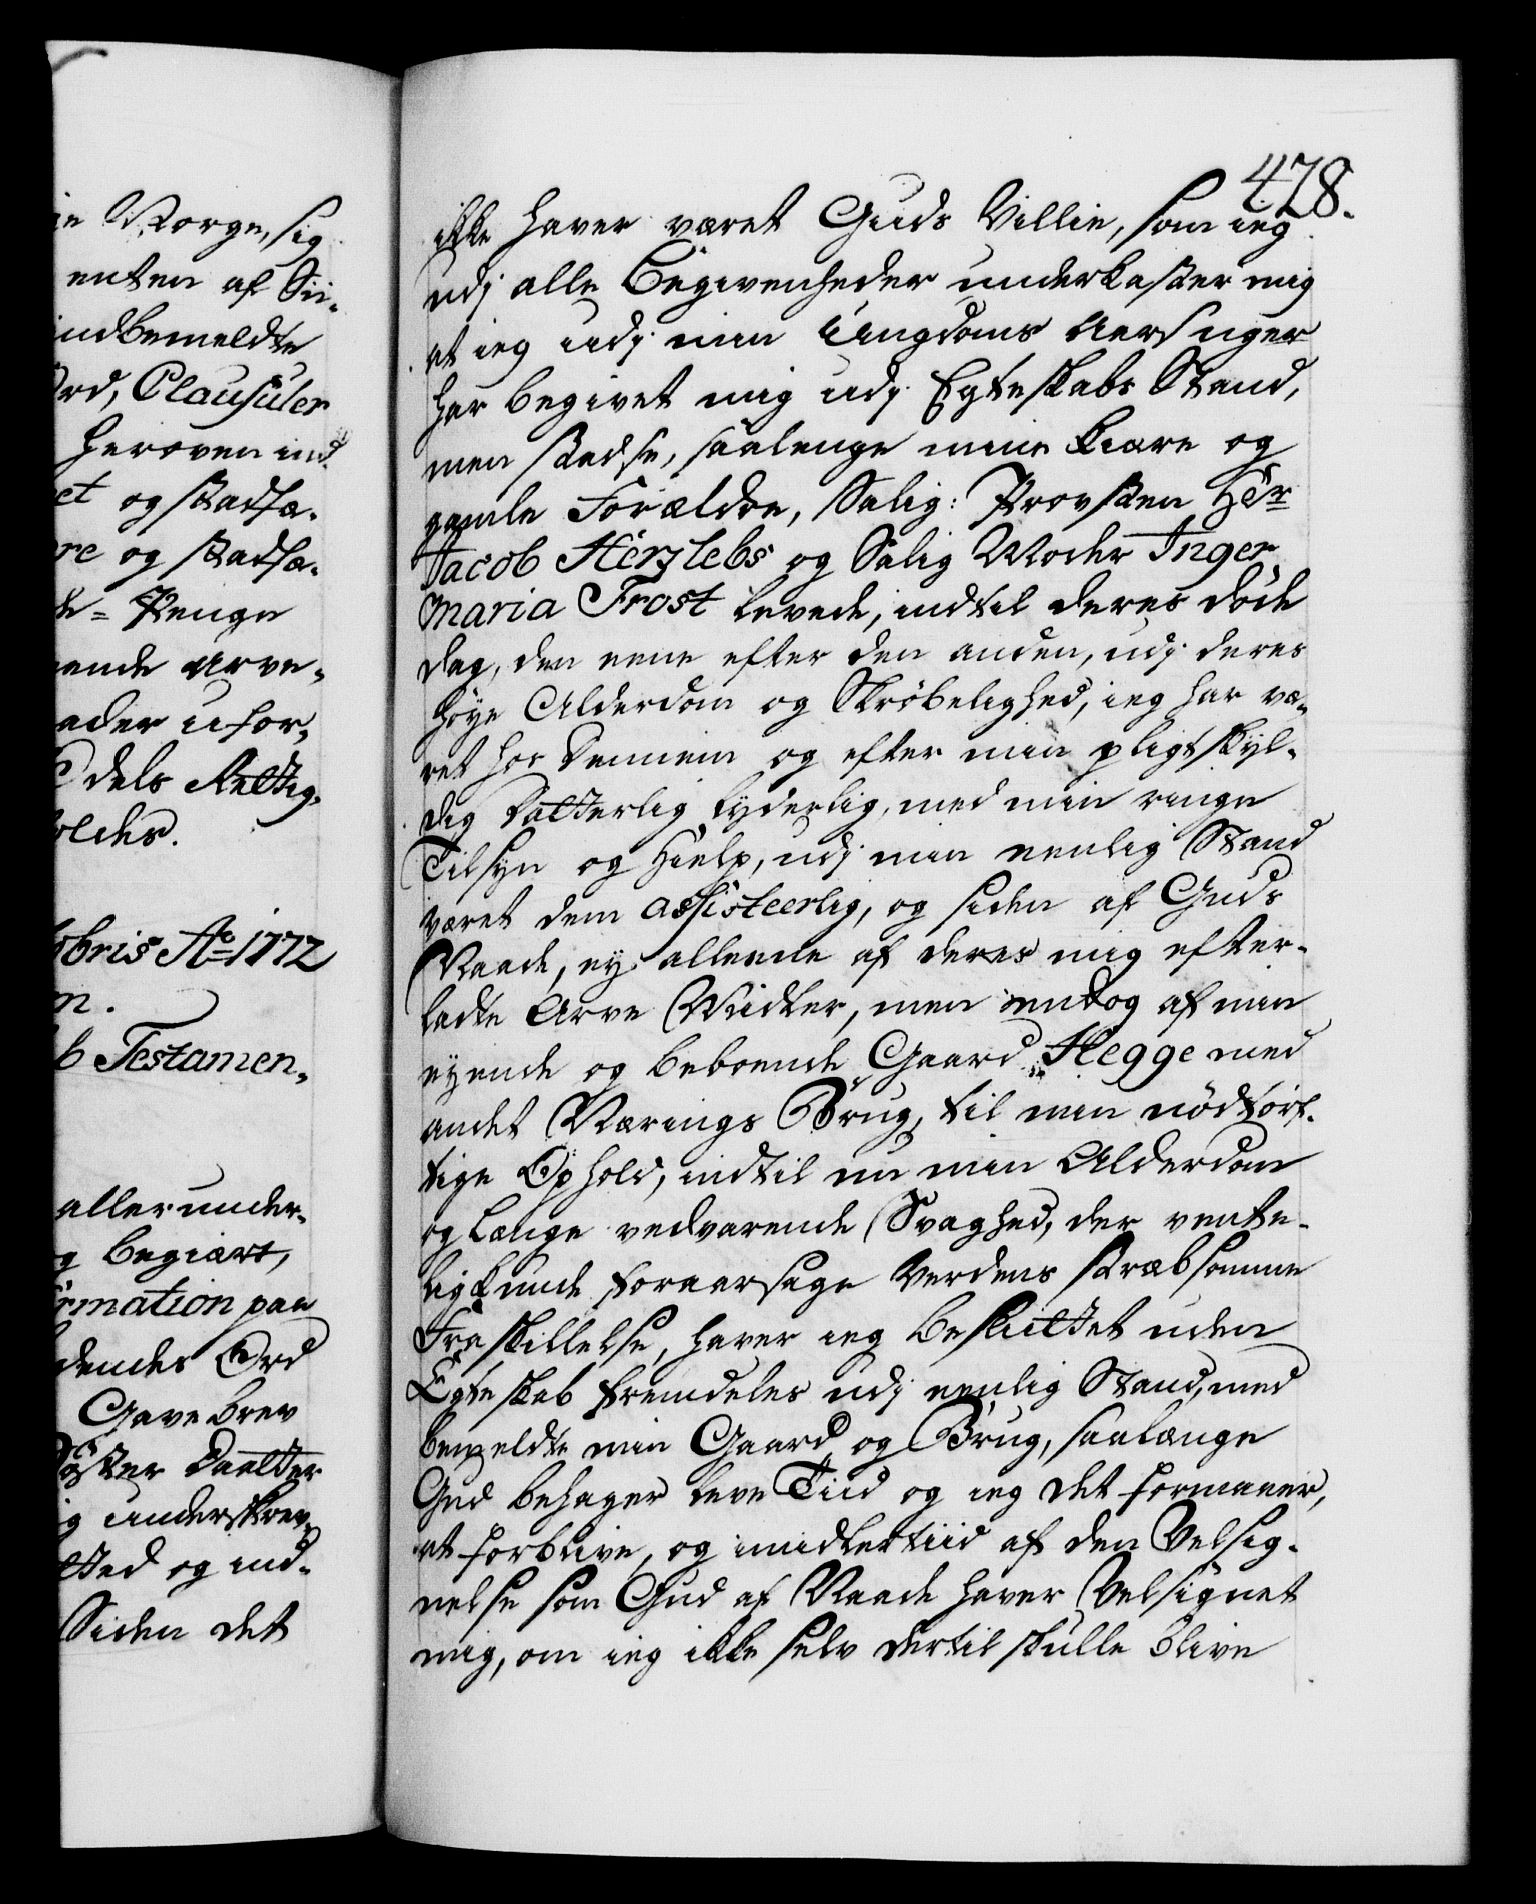 ie Norge, sig
enten af Sii-
indbemeldte
Ord, Clausuler
heroven ind-
et og stadfæ-
re og stadfæ-
de= Penge
ende Arve-
ader ufor-
Odels Rettig-
oldes.
bris Ao 1772
n.
b Testamen-
allerunder-
g begiært,
rmation paa
dendes Ord
Gave brev
Søster Daatter
ig underskrev
tted og ind-
Siden det
478.
ikke haver været Guds Villie, som ieg
udj alle Begivenheder underkaster mig
at ieg udj min Ungdoms Aers uger
har begivet mig udj Egteskabs Stand,
men stedse, saalenge mine kiære og
gamle Forældre, Salig: Provsten Hēr
Jacob Hērzlebs og Salig Moder Inger
Maria Frost levede, indtil deres døde
Dag, den eene efter den anden, udj deres
høye Alderdom og Skrøbelighed, ieg har væ-
ret hos dennem og efter min pligtskyl-
dig Datterlig lyderlig, med min ringe
Tilsyn og Hielp, udj min eenlig Stand
været dem assisteerlig, og siden af Guds
Naade, ey alleene af deres mig efter-
ladte Arve Midler, men endog af min
eyende og beboende Gaard Hegge med
andet Nærings Brug, til min nødtørf-
tige Ophold, indtil nu min Alderdom
og længe vedvarende Svaghed, der vente-
lig kunde foraarsage Verdens stræbsomme
Fra skillelse, haver ieg besluttet uden
Egteskab fremdeles udj eenlig Stand, med
bemeldte min Gaard og Brug, saalænge
Gud behager leve Tiid og ieg det formaaer,
at forblive, og imidlertiid af den Velsig-
nelse som Gud af Naade haver Velsignet
mig, om ieg ikke selv dertil skulle blive